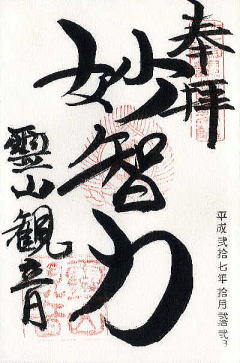 奉拝
平成弐拾七年拾月弐拾弐日
妙智力
霊山観音